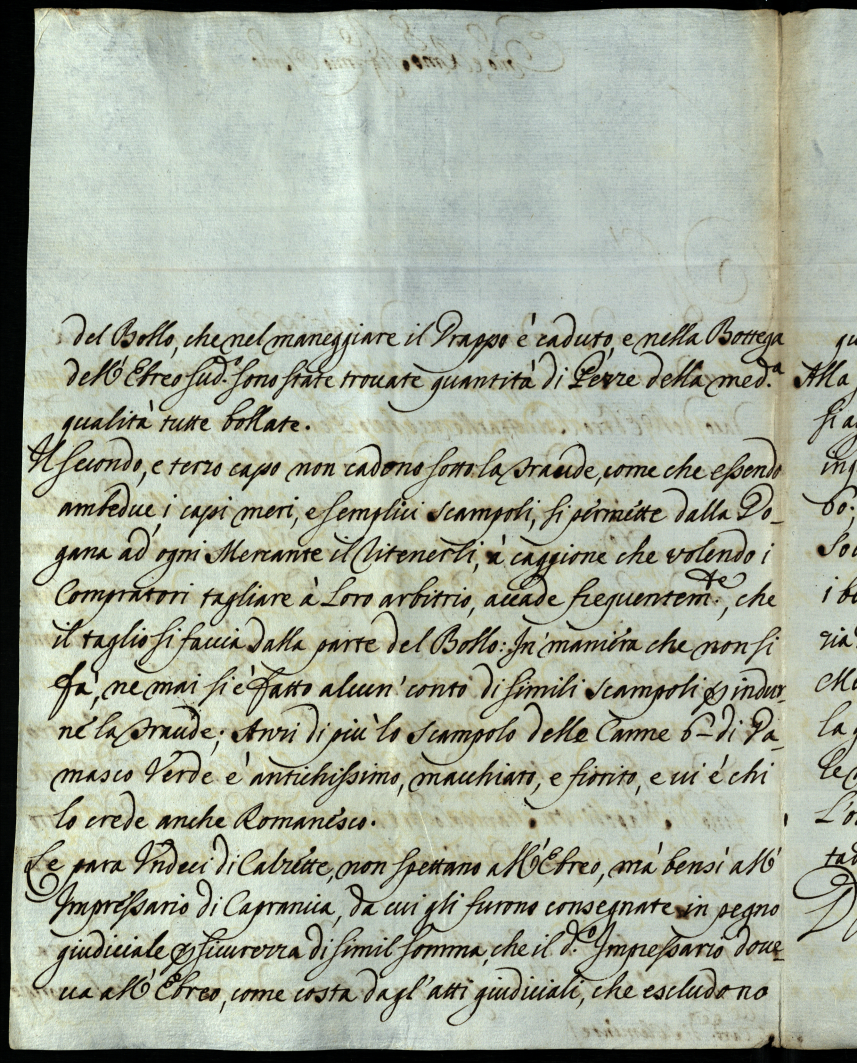 del Bollo, che nel maneggiare il Drappo è caduto, e nella Bottega
dell'Ebreo sud.º sono state trovate quantità di Pezze della med.ª
qualità tutte bollate.
Il secondo, e terzo capo non cadono sotto la fraude, come che essendo
ambedue i capi meri, e semplici scampoli, si permette dalla Do-
gana ad ogni Mercante il ritenerli, à caggione che volendo i
Compratori tagliare à Loro arbitrio, accade frequentem.te, che
il taglio si faccia dalla parte del Bollo: In maniera che non si
fà, ne mai si è fatto alcun' conto di simili scampoli p indur-
ne la fraude; Anzi di più lo scampolo delle Canne 6- di Da-
masco Verde è antichissimo, macchiato, e fiorito, e vi è chi
lo crede anche Romanesco.
Le para Undeci di Calzette, non spettano all'Ebreo, mà bensì all'
Impressario di Capranica, da cui gli furono consegnate in pegno
giudiciale p sicurezza di simil somma, che il d.º Impressario dove-
va all'Ebreo, come costa dagl'atti giudiciali, che escludono